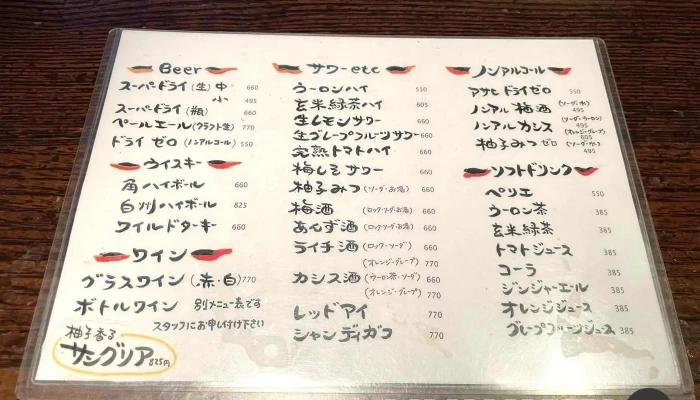 Beer
スーパードライ(生) 中 660
小 495
スーパードライ(瓶) 660
ペールエール(クラフト生) 770
ドライ ゼロ(ノンアルコール) 550
ウイスキー
角ハイボール 660
白州ハイボール 825
ワイルドターキー 660
ワイン
グラスワイン(赤・白) 770
ボトルワイン 別メニュー表です
スタッフにお申し付け下さい
柚子香る
サングリア 825円
サワーetc
ウーロンハイ 550
玄米緑茶ハイ 605
生レモンサワー 660
生グレープフルーツサワー 660
完熟トマトハイ 660
梅しそサワー 660
柚子みつ(ソーダ・お湯) 660
梅酒(ロック・ソーダ・お湯) 660
あんず酒(ロック・ソーダ・お湯) 660
ライチ酒(ロック・ソーダ) 660
(オレンジ・グレープ) 770
カシス酒(ウーロン茶・ソーダ) 660
(オレンジ・グレープ) 770
レッドアイ 770
シャンディガフ 770
ノンアルコール
アサヒ ドライゼロ 550
ノンアル梅酒(ソーダ・水) 495
ノンアルカシス(ソーダ・ウーロン) 495
(オレンジ・グレープ) 605
柚子みつ ゼロ(ソーダ・水) 495
ソフトドリンク
ペリエ 550
ウーロン茶 385
玄米緑茶 385
トマトジュース 385
コーラ 385
ジンジャーエール 385
オレンジジュース 385
グレープフルーツジュース 385